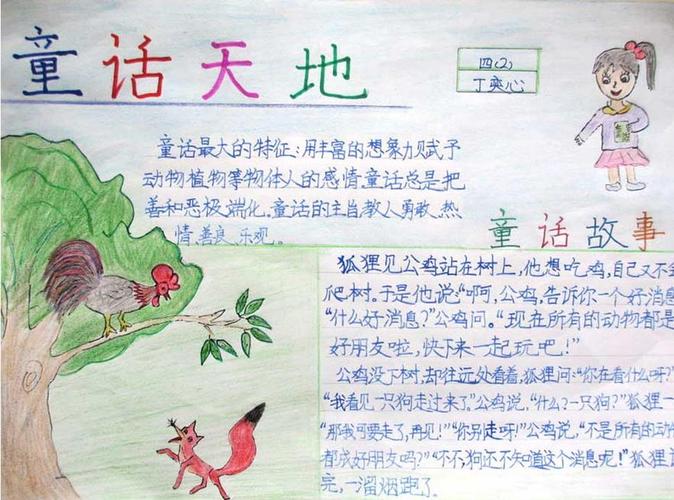 童话天地
四(2)
丁奕心
童话最大的特征:用丰富的想象力赋予
动物植物等物体人的感情.童话总是把
善和恶极端化.童话的主旨教人勇敢、热
情、善良、乐观。
童话故事
狐狸见公鸡站在树上,他想吃鸡,自己又不会
爬树。于是他说“啊,公鸡,告诉你一个好消息
“什么好消息?”公鸡问。“现在所有的动物都是
好朋友啦,快下来一起玩吧!”
公鸡没下树,却往远处看着,狐狸问:“你在看什么呀?”
“我看见一只狗走过来了,”公鸡说,“什么?一只狗?”狐狸一
“那我可要走了,再见!”“你别走呀!”公鸡说,“不是所有的动
都成好朋友吗?”“不,不,狗还不知道这个消息呢!”狐狸
完,一溜烟跑了。